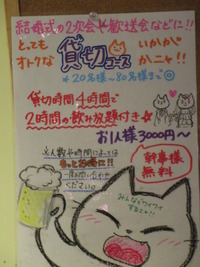 結婚式の2次会や歓送会などに!!
とっても
オトクな
貸切コース
いかが
かニャ!!
*20名様~80名様まで◎
貸切時間4時間で
2時間の飲み放題付き☆
お1人様3000円~
※人数や時間によっては
もっとお得に!!
ください。
幹事様
無料
みんなでワイワイ